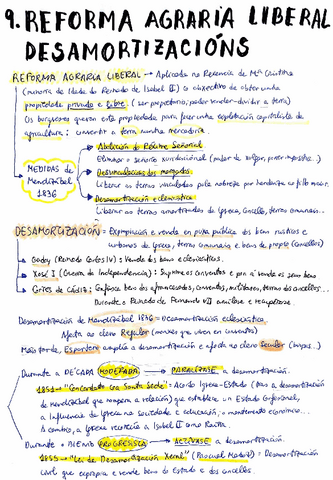 9. REFORMA AGRARIA LIBERAL
DESAMORTIZACIÓNS
REFORMA AGRARIA LIBERAL → Aplicada na Rexencia de Mª Cristina
(minoría de idade do Reinado de Isabel II) co obxectivo de obter unha
propiedade privada e libre (ser propietario; poder vender-dividir a terra)
Os burgueses queren esta propiedade para facer unha explotación capitalista da
agricultura: convertir a terra nunha mercadoría.
Abolición do Réxime Señorial
Eliminar o señorío xurisdiccional (poder de xulgar, poñer impostos...)
MEDIDAS de
Mendizábal
1836
Desvinculacións dos morgados
Liberar as terras vinculadas pola nobreza por herdanza ao fillo maior.
Desamortización eclesiástica
Liberar as terras amortizadas da Igrexa, Concello, terras comunais...
DESAMORTIZACIÓN = Expropiación e venda en puxa pública dos bens rústicos e
urbanos da Igrexa, terras comunais e bens de propios (concellos)
Godoy (Reinado Carlos IV): Vende dos bens eclesiásticos.
Xosé I (Guerra da Independencia): Suprime os conventos e pon á venda os seus bens
Cortes de Cádiz: bens dos afrancesados, conventos, militares, terras dos concellos...
Durante o Reinado de Fernando VII anúlase e recupérase.
Desamortización de Mendizábal 1836 = Desamortización eclesiástica
Afecta ao clero Regular (monxes que viven en conventos)
Máis tarde, Espartero amplía a desamortización e afecta ao clero Secular (bispos...)
Durante a DÉCADA MODERADA → PARALÍZASE a desamortización.
1851 → "Concordato Coa Santa Sede": Acordo Igrexa-Estado (Pois a desamortización
de Mendizábal que rompera a relación) que establece un Estado Confesional,
a influencia da Igrexa na sociedade e educación; o mantemento económico...
A cambio, a Igrexa recoñecía a Isabel II como Raíña.
Durante o BIENIO PROGRESISTA → ACTÍVASE a desamortización.
1855 → "Lei de Desamortización Xeral" (Pascual Madoz) = Desamortización
civil que expropia e vende bens do Estado e dos concellos.